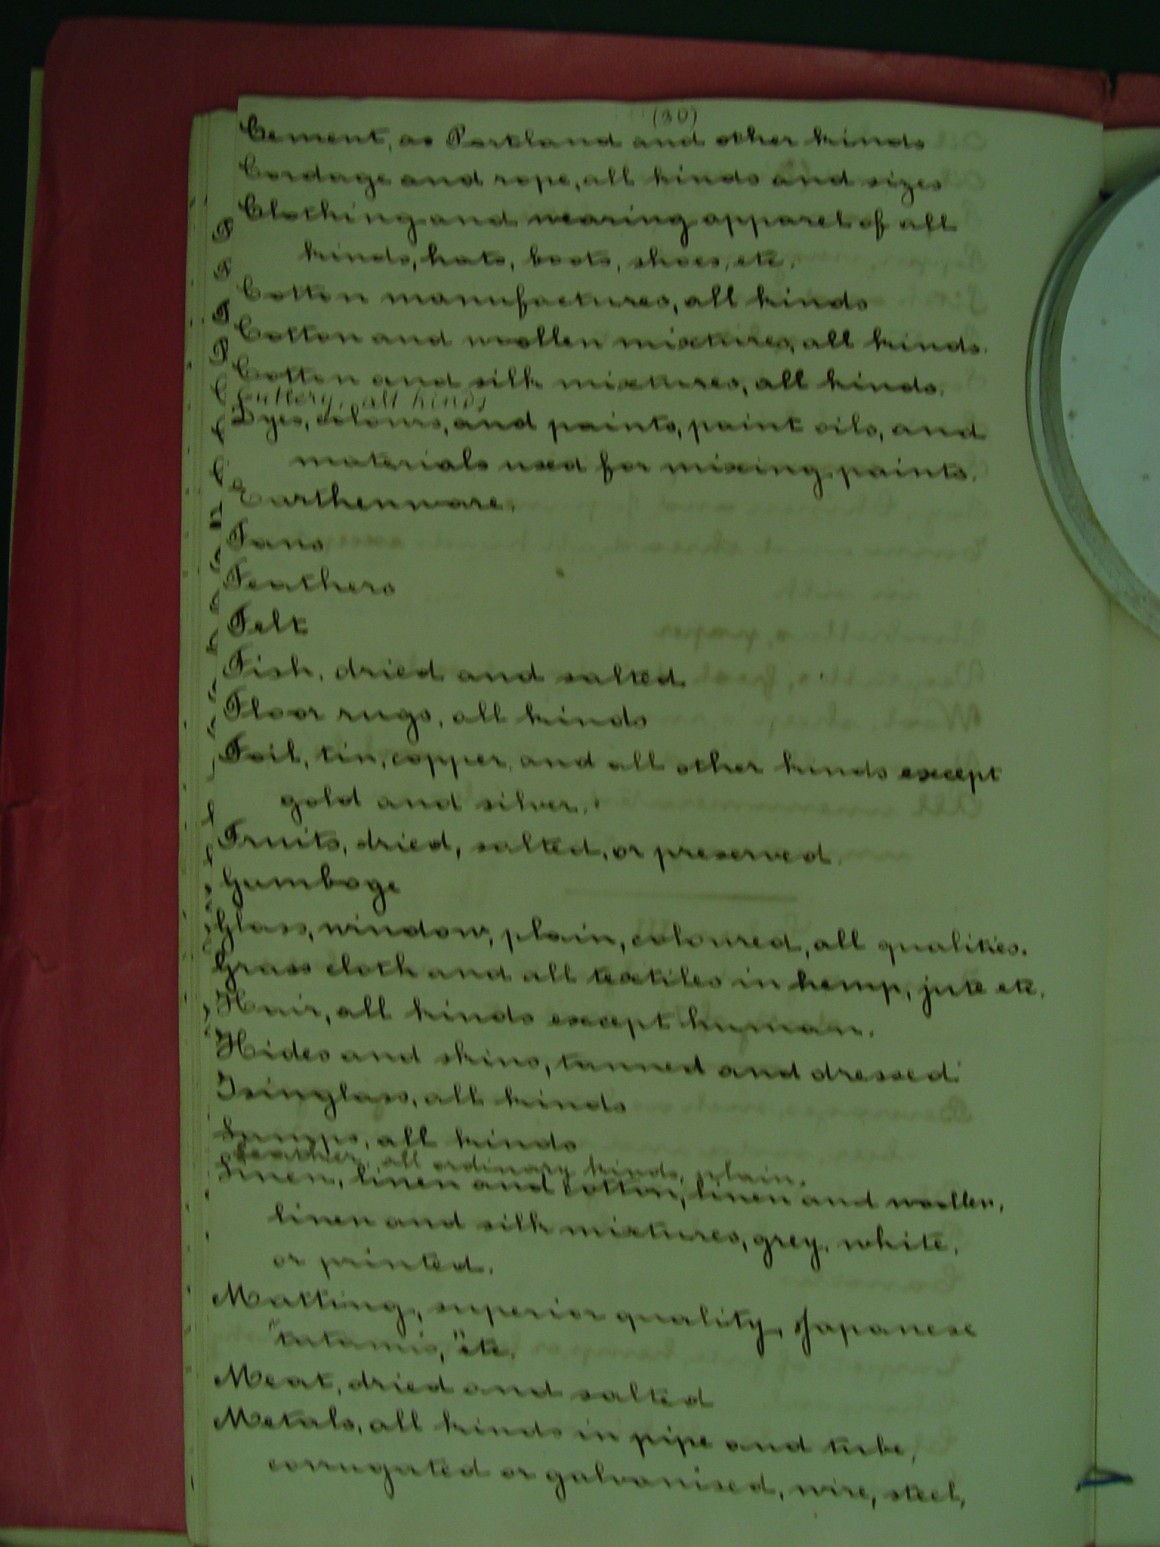 (30)
Cement, as Portland and other kinds
Cordage and rope, all kinds and sizes
Clothing and wearing apparel of all
kinds, hats, boots, shoes, etc.
Cotton manufactures, all kinds
Cotton and woollen mixtures, all kinds.
Cotton and silk mixtures, all kinds.
Cutlery, all kinds
Dyes, colours, and paints, paint oils, and
materials used for mixing paints.
Earthenware.
Fans
Feathers
Felt
Fish, dried and salted
Floor rugs, all kinds
Foil, tin, copper, and all other kinds except
gold and silver.
Fruits, dried, salted, or preserved.
Gamboge
Glass, window, plain, coloured, all qualities.
Grass cloth and all textiles in hemp, jute etc.
Hair, all kinds except human.
Hides and skins, tanned and dressed
Isinglass, all kinds
Lamps, all kinds
Leather, all ordinary kinds, plain.
Linen, linen and cotton, linen and woollen,
linen and silk mixtures, grey, white,
or printed.
Matting, superior quality, Japanese
"tatamis," etc.
Meat, dried and salted
Metals, all kinds in pipe and tube,
corrugated or galvanised, wire, steel,